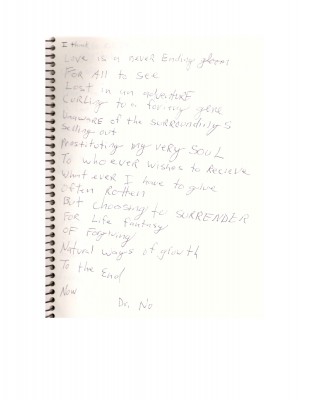 I think
Love is a never Ending gloom
FOR All to see
Lost in an adventure
Curling to a
Unaware of the SURROUNDINGS
Selling out
Prostituting my very SOUL
To who ever wishes to Recieve
What ever I have to give
Often Rotten
But choosing to SURRENDER
FOR Life fantasy
OF Forgiving
Natural ways of growth
To the End
Now
Dr. No